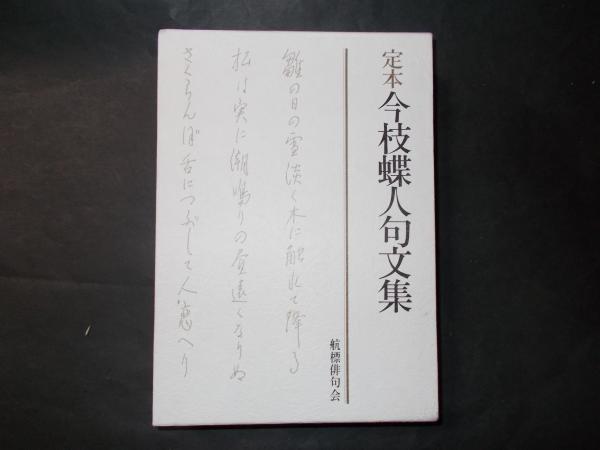 定本 今枝蝶人句文集
航標俳句会
雛の日の雪淡く木に触れて降る
松は実に潮鳴りの昼遠くなりぬ
さくらんぼ舌につぶして人憲へり